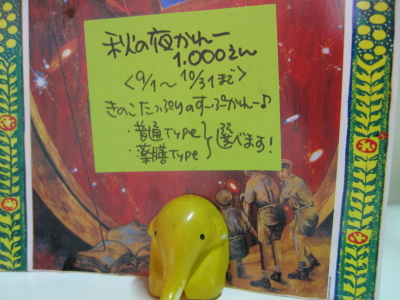 秋の夜かれー
1.000えん
<9/1〜10/31まで>
きのこたっぷりのすーぷかれー♪
・普通Type
・薬膳Type
}選べます!